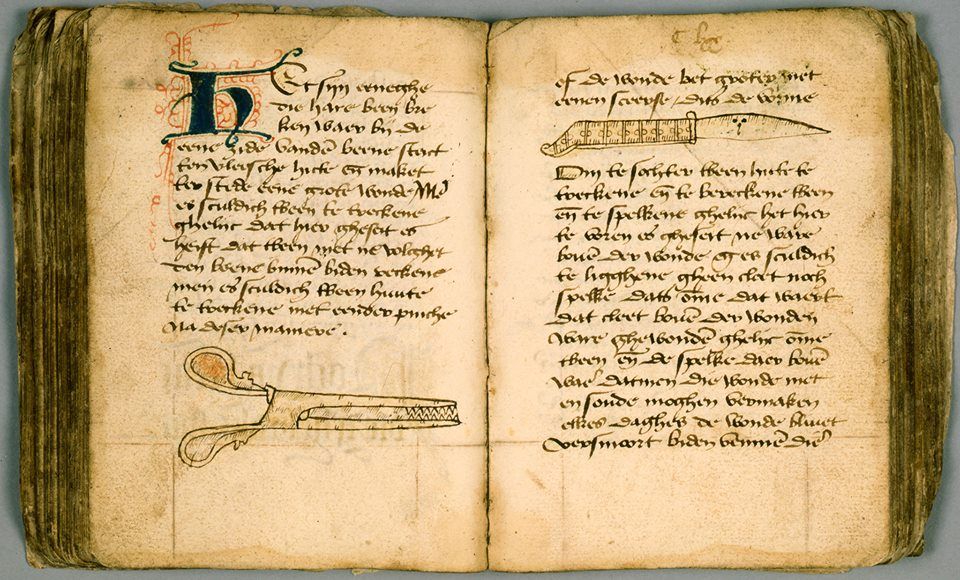 Het sijn eeneghe
die hare been bre
ken waer bij de
eene zide vandē beene staet
ten vleissche hute eñ maket
ter stede eene grote wonde Mē
es sculdich tbeen te treckene
ghelijc dat hier gheseit es
heist dat tbeen niet ne volghet
den beene binnē biden reckene
men es sculdich tbeen huute
te treckene met eender pinche
Na deser maniere .
of de wonde bet groter met
eenen sceerse / dits de vorme
Om te sochter tbeen hute te
treckene eñ te bereckene tbeen
eñ te spelkene ghelijc het hier
te voren es gheseit ne ware
bouē der wonde eñ es sculdich
te ligghene gheen cleet noch
spelke dats ōme dat waert
dat cleet bouē der wonden
ware ghewondē ghelijc ōme
tbeen eñ de spelke daer bouē
waē datmen die wonde niet
en soude moghen vermaken
elkes daghes de wonde bliuet
versmoort biden veninne die